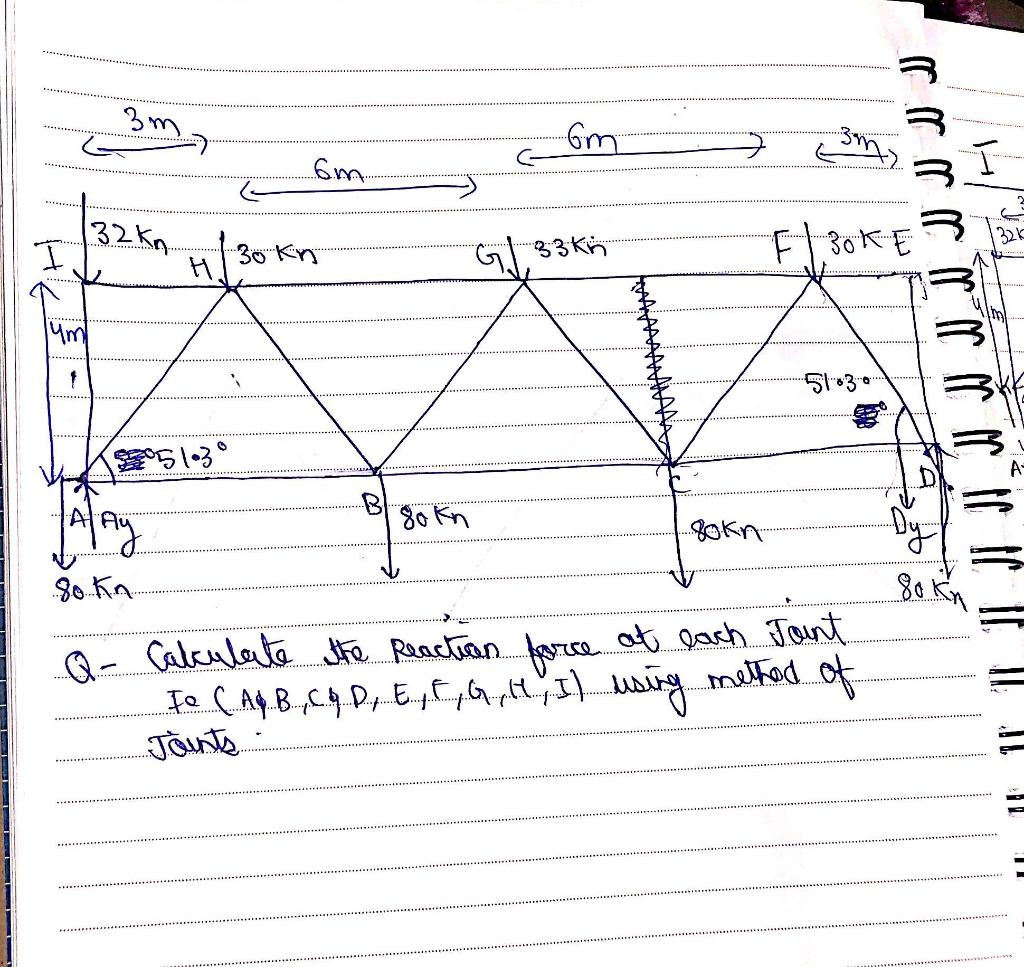 3m
6m
6m
3m
I
32 Kn
H
30 Kn
G
33 Kn
F
30 K
E
4m
51.3°
51.3°
A
Ay
B
80 Kn
C
80Kn
D
Dy
80 Kn
80 Kn
Q- Calculate the Reaction force at each Joint
Ie (A, B, C, D, E, F, G, H, I) using method of
Joints.
I
32K
4m
A